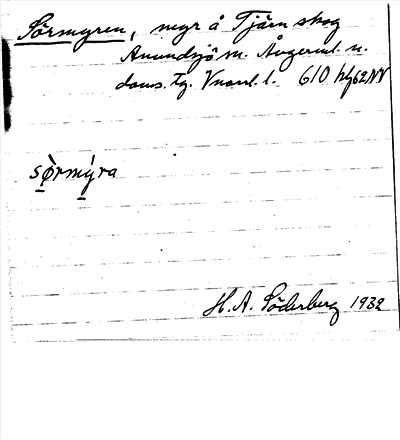 Sörmyren, myr å Tjärn skog
Anundsjö sn. Ångerml. n.
doms. tg. Vnorrl. l. 610 hg 62 NV
sørmýra
H. A. Söderberg 1932